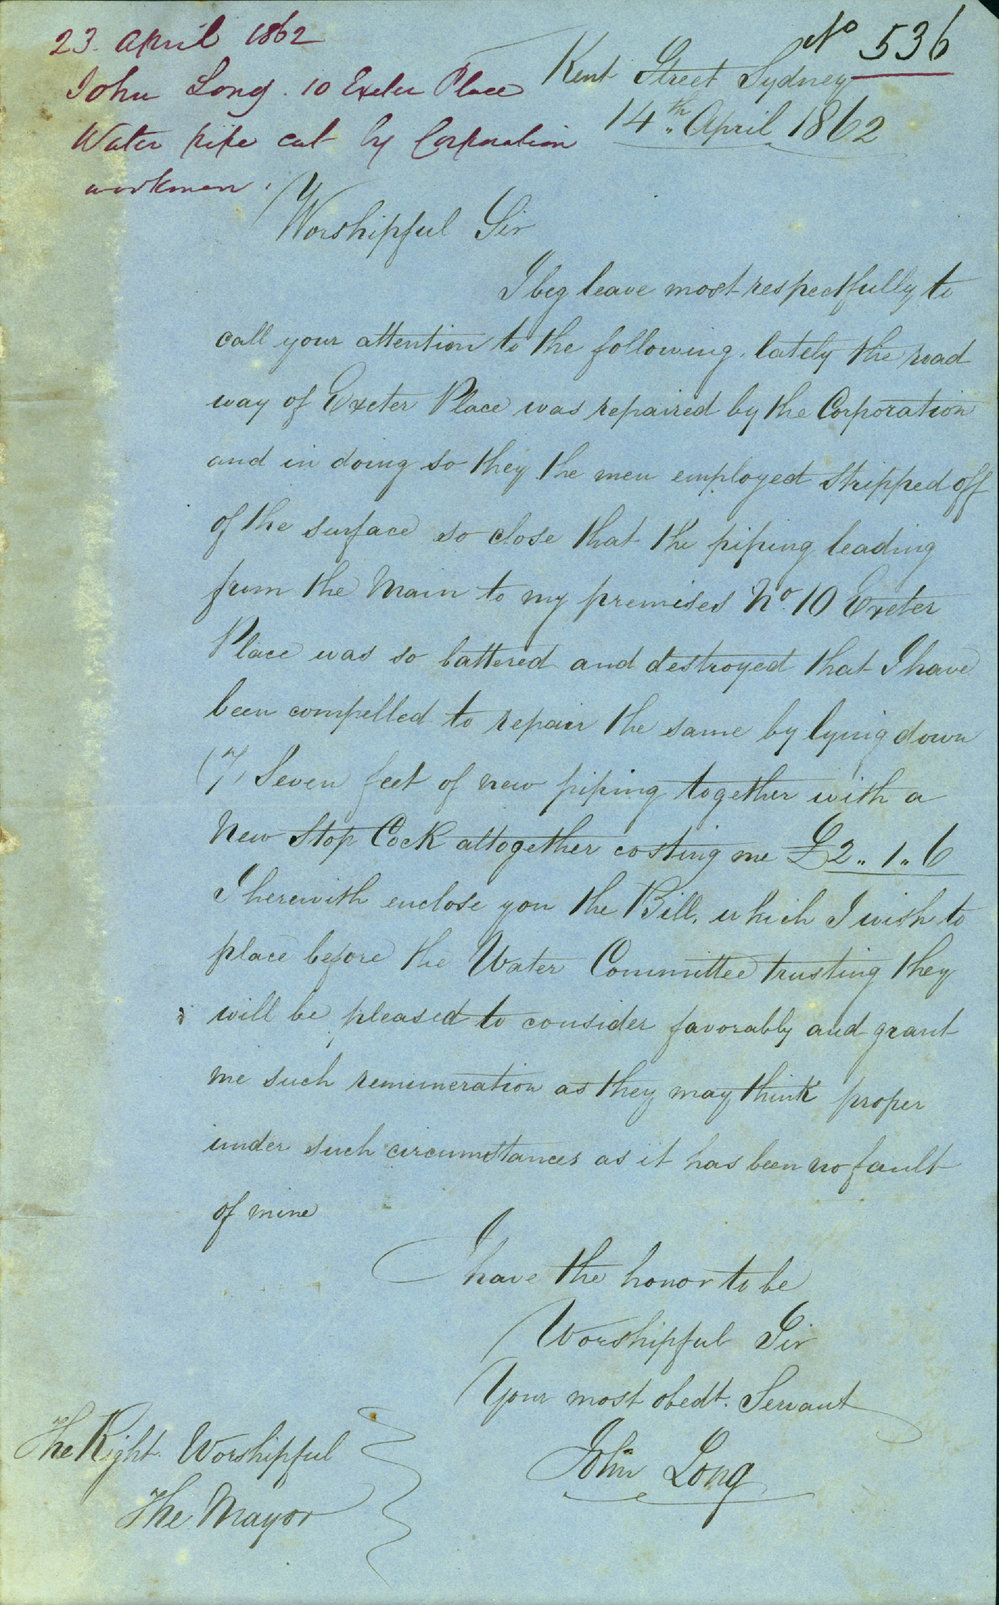 23 April 1862
John Long. 10 Exeter Place
Water pipe cut by Corporation
workmen.
No 536
Kent Street Sydney
14th April 1862
Worshipful Sir
I beg leave most respectfully to
call your attention to the following. lately the road
way of Exeter Place was repaired by the Corporation
and in doing so they the men employed stripped off
of the surface so close that the piping leading
from the Main to my premises No. 10 Exeter
Place was so battered and destroyed that I have
been compelled to repair the same by lying down
(7) Seven feet of new piping together with a
New Stop Cock altogether costing me £2 " 1 " 6
I herewith enclose you the Bill, which I wish to
place before the Water Committee trusting they
will be pleased to consider favorably and grant
me such remuneration as they may think proper
under such circumstances as it has been no fault
of mine
I have the honor to be
Worshipful Sir
Your most obedt. Servant
John Long
The Right Worshipful
The Mayor